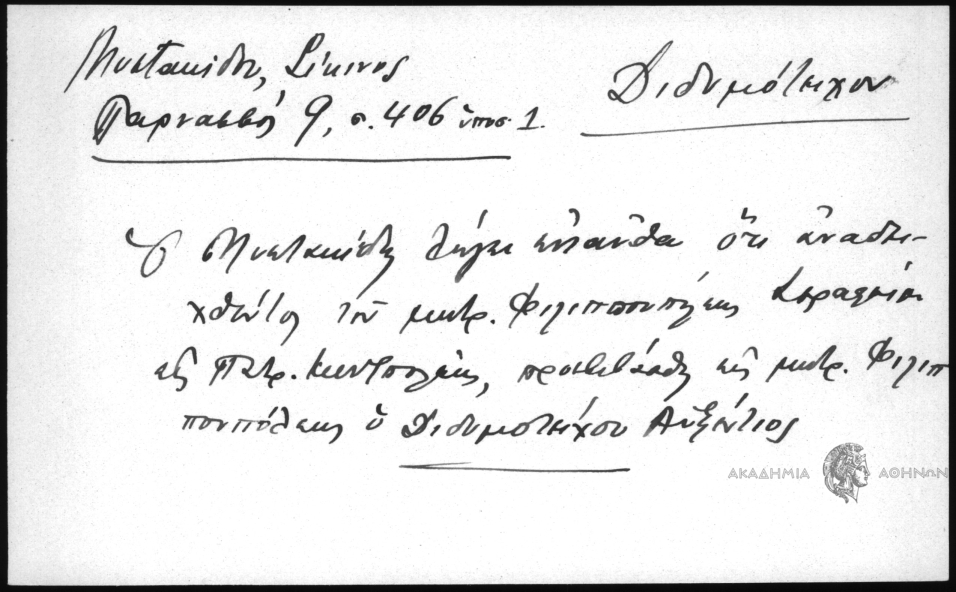 Μυστακίδου, Σίκινος
Παρνασσός 9, σ. 406 ὑποσ. 1.
Διδυμότειχον
Ὁ Μυστακίδης λέγει ἐνταῦθα ὅτι ἀναδει-
χθέντος τοῦ μητρ. Φιλιππουπόλεως Σεραφείμ
εἰς Πατρ. Κων)πόλεως, προεβιβάσθη εἰς μητρ. Φιλιπ
πουπόλεως ὁ Διδυμοτείχου Αὐξέντιος
ΑΚΑΔΗΜΙΑ ΑΘΗΝΩΝ